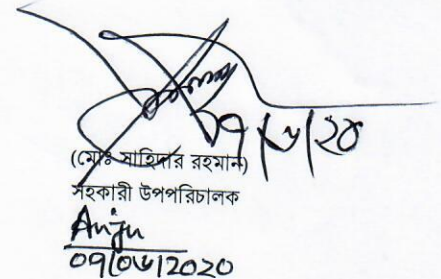 ০৭/৬/২০
(মোঃ সাহিদার রহমান)
সহকারী উপপরিচালক
Anju
০৭/০৬/2020